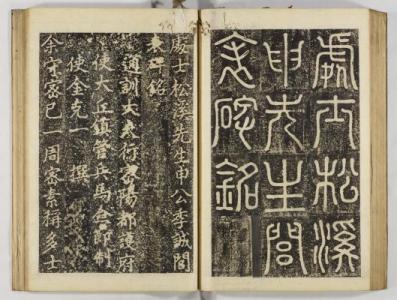 處士松溪
申先生閭
表碑銘
處士松溪先生申公季誠閭
表碑銘
通訓大夫行密陽都護府
使大丘鎮管兵馬僉節制
使金克一 撰
余守密已一周密素稱多士